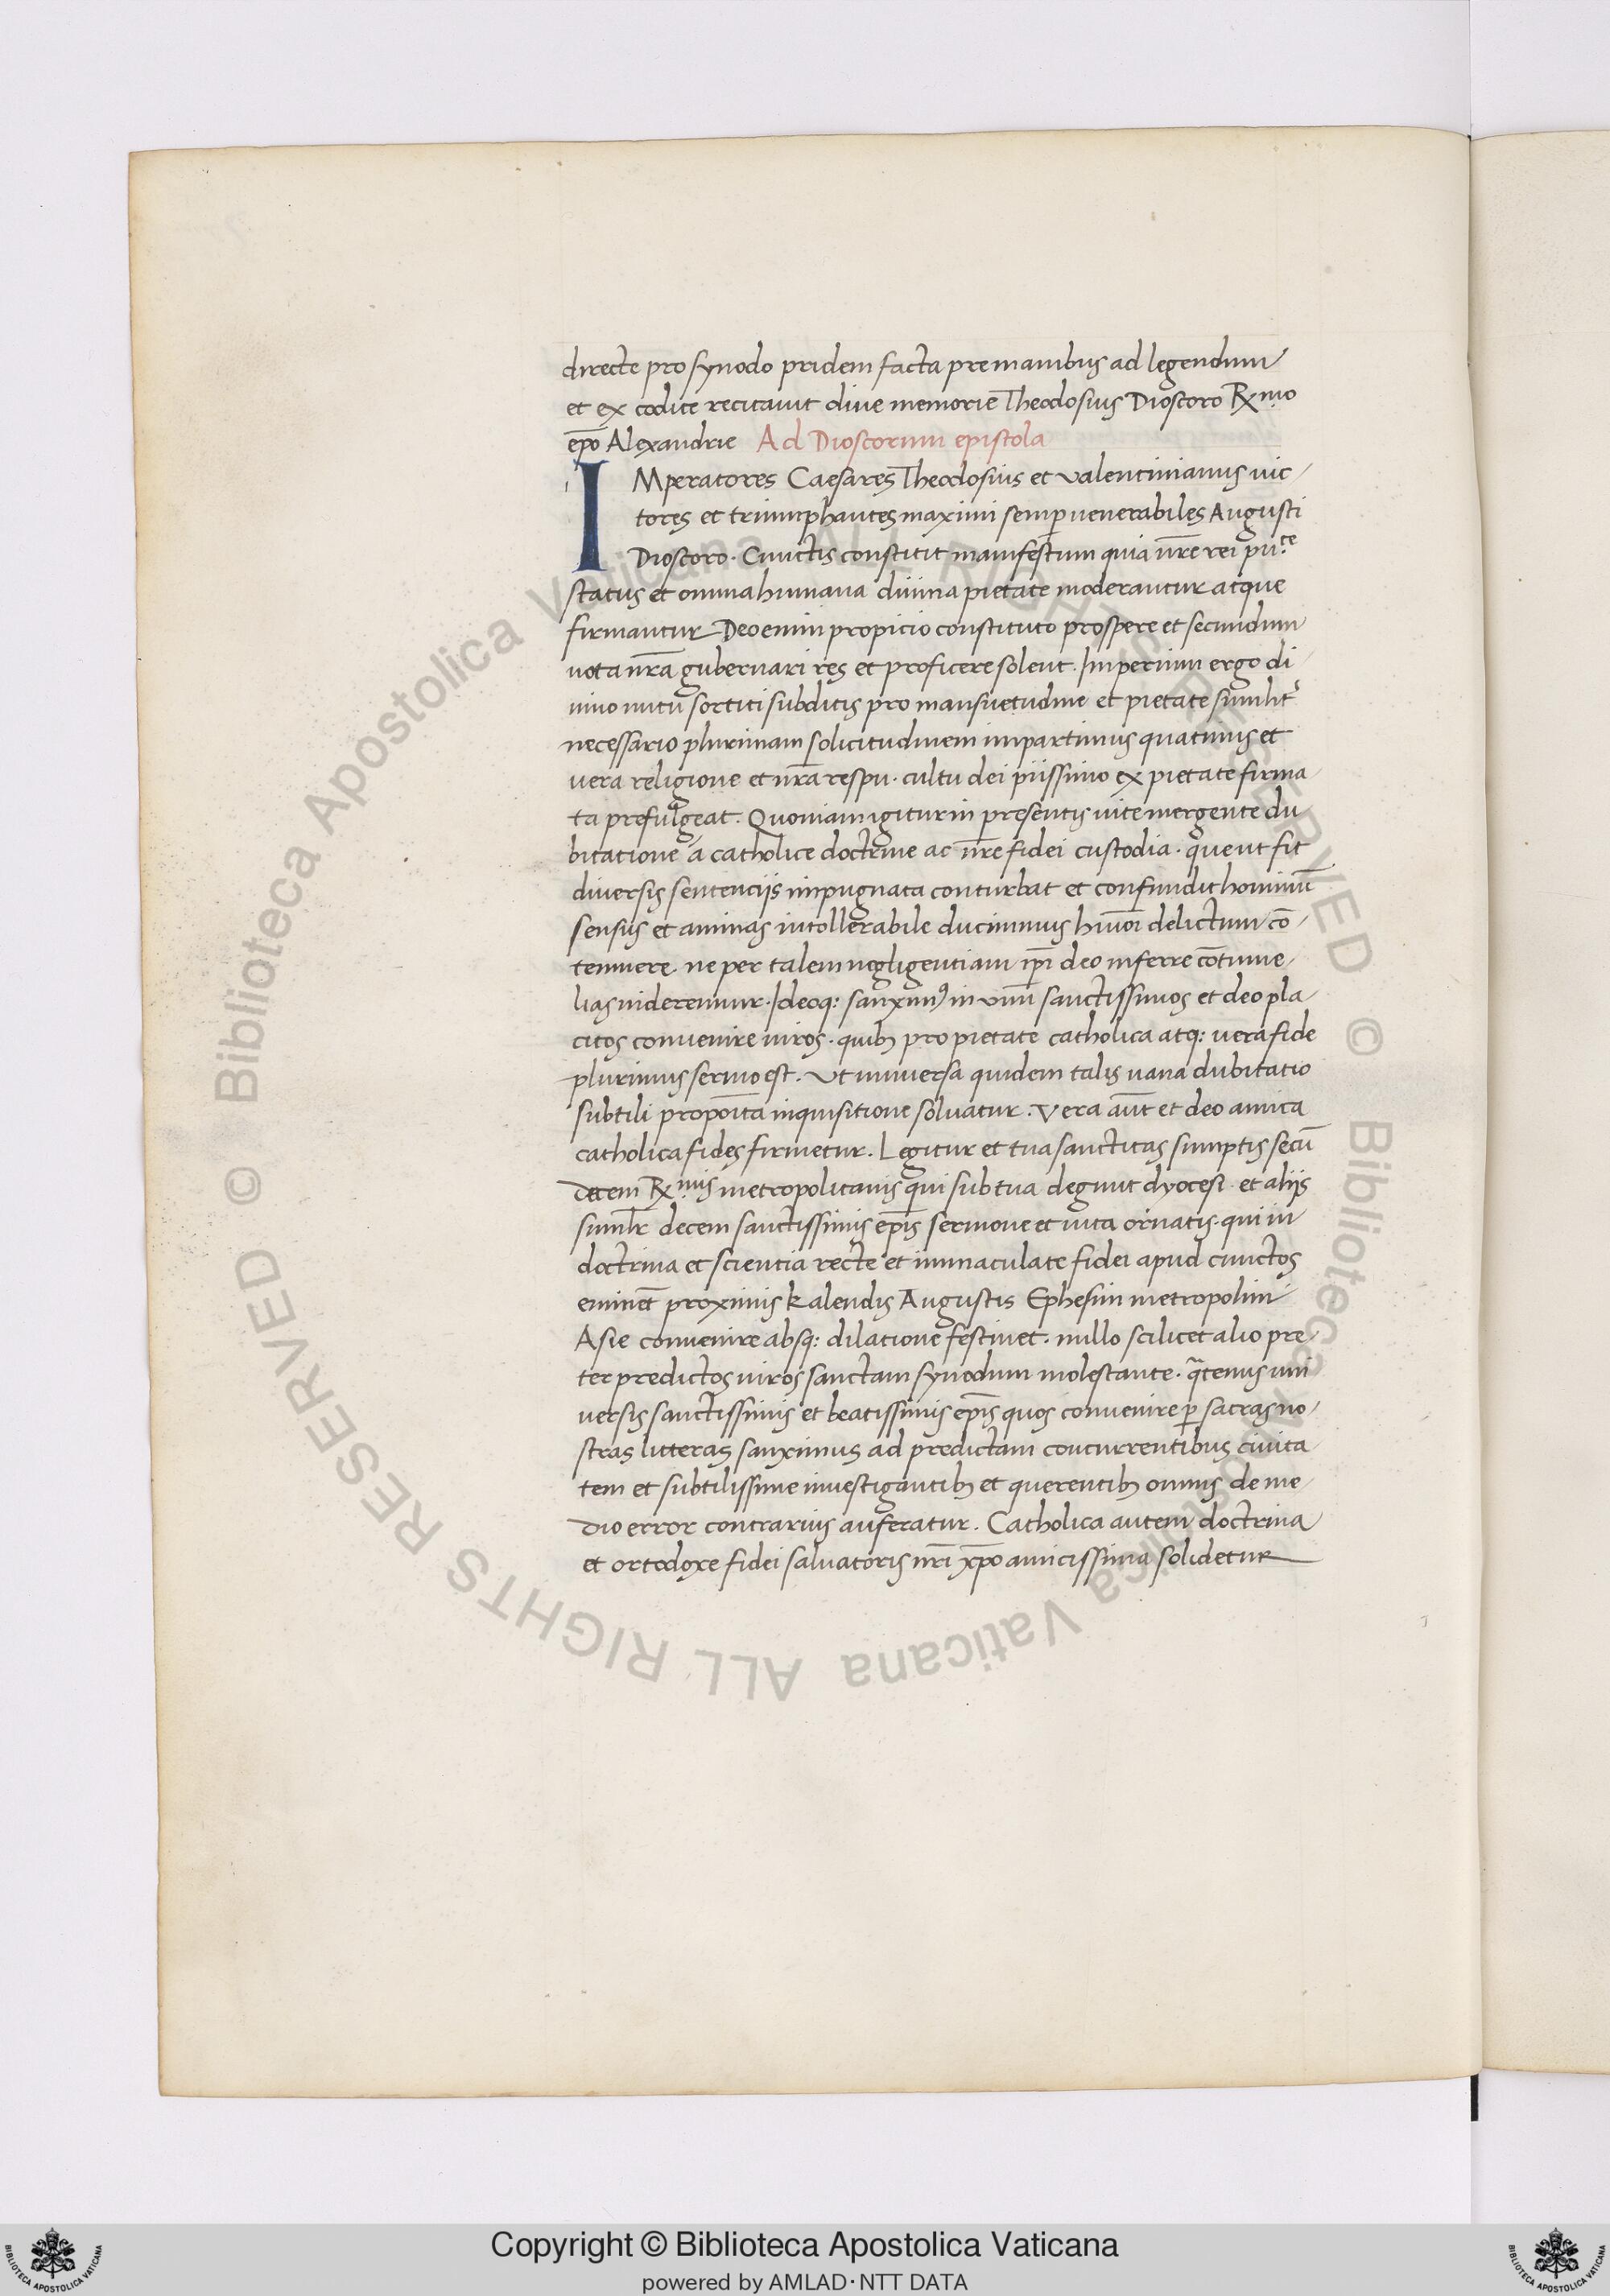 directe pro synodo pridem facta pre manibus ad legendum
et ex codice recitauit diue memorie Theodosius Dioscoro Rx.mo
ep̄o Alexandrie Ad Dioscorum epistola
IMperatores Caesares Theodosius et valentinianus uic
tores et triumphantes maximi semp̱ uenerabiles Augusti
Dioscoro. Cunctis constitit manifestum quia nr̄e rei pu.ce
status et omnia humana diuina pietate moderantur atque
firmantur Deo enim propicio constituto prospere et secundum
uota nr̄a gubernari res et proficere solent. Imperium ergo di
uino nutu sortiti subditis pro mansuetudine et pietate simil̄r
necessario plurimam solicitudinem impartimus quatinus et
vera religione et nr̄a respu. cultu dei piissimo ex pietate firma
ta prefulgeat. Quoniam igitur in presentis uite mergente du
bitatione a catholice doctrine ac nr̄e fidei custodia. que ut fit
diversis sentenciis impugnata conturbat et confundit hominū
sensus et animas intollerabile ducimmus huiꝰoi delictum cō
temnere. ne per talem negligentiam ip̄i deo inferre cōtume
lias uideremur. Ideoq: sanximꝰ in unū sanctissimos et deo pla
citos convenire uiros. quibꝫ pro pietate catholica atq: vera fide
plurimus sermo est. Ut universa quidem talis uana dubitatio
subtili propoīta inquisitione soluatur. Vera aūt et deo amica
catholica fides firmetur. Legitur et tua sanctitas sumptis secū
decem Rx.mis metropolitanis qui sub tua degunt dyocesi. et aliis
simil̄r decem sanctissimis ep̄is sermone et uita ornatis. qui in
doctrina et scientia recte et immaculate fidei apud cunctos
eminēt proximis Kalendis Augustis Ephesum metropolim
Asie convenire absq: dilatione festinet. nullo scilicet alio pre
ter predictos uiros sanctam synodum molestante. q̄tenus uni
versis sanctissimis et beatissimis ep̄is quos convenire p̱ sacras no
stras litteras sanximus ad predictam concurrentibus ciuita
tem et subtilissime investigantibꝫ et querentibꝫ omnis de me
dio error contrarius auferatur. Catholica autem doctrina
et ortodoxe fidei salvatoris nr̄i xp̄o amicissima solidetur
Biblioteca Apostolica Vaticana ALL RIGHTS RESERVED ©
Biblioteca Apostolica Vaticana ALL RIGHTS RESERVED ©
Copyright © Biblioteca Apostolica Vaticana
powered by AMLAD·NTT DATA
BIBLIOTECA APOSTOLICA VATICANA
BIBLIOTECA APOSTOLICA VATICANA